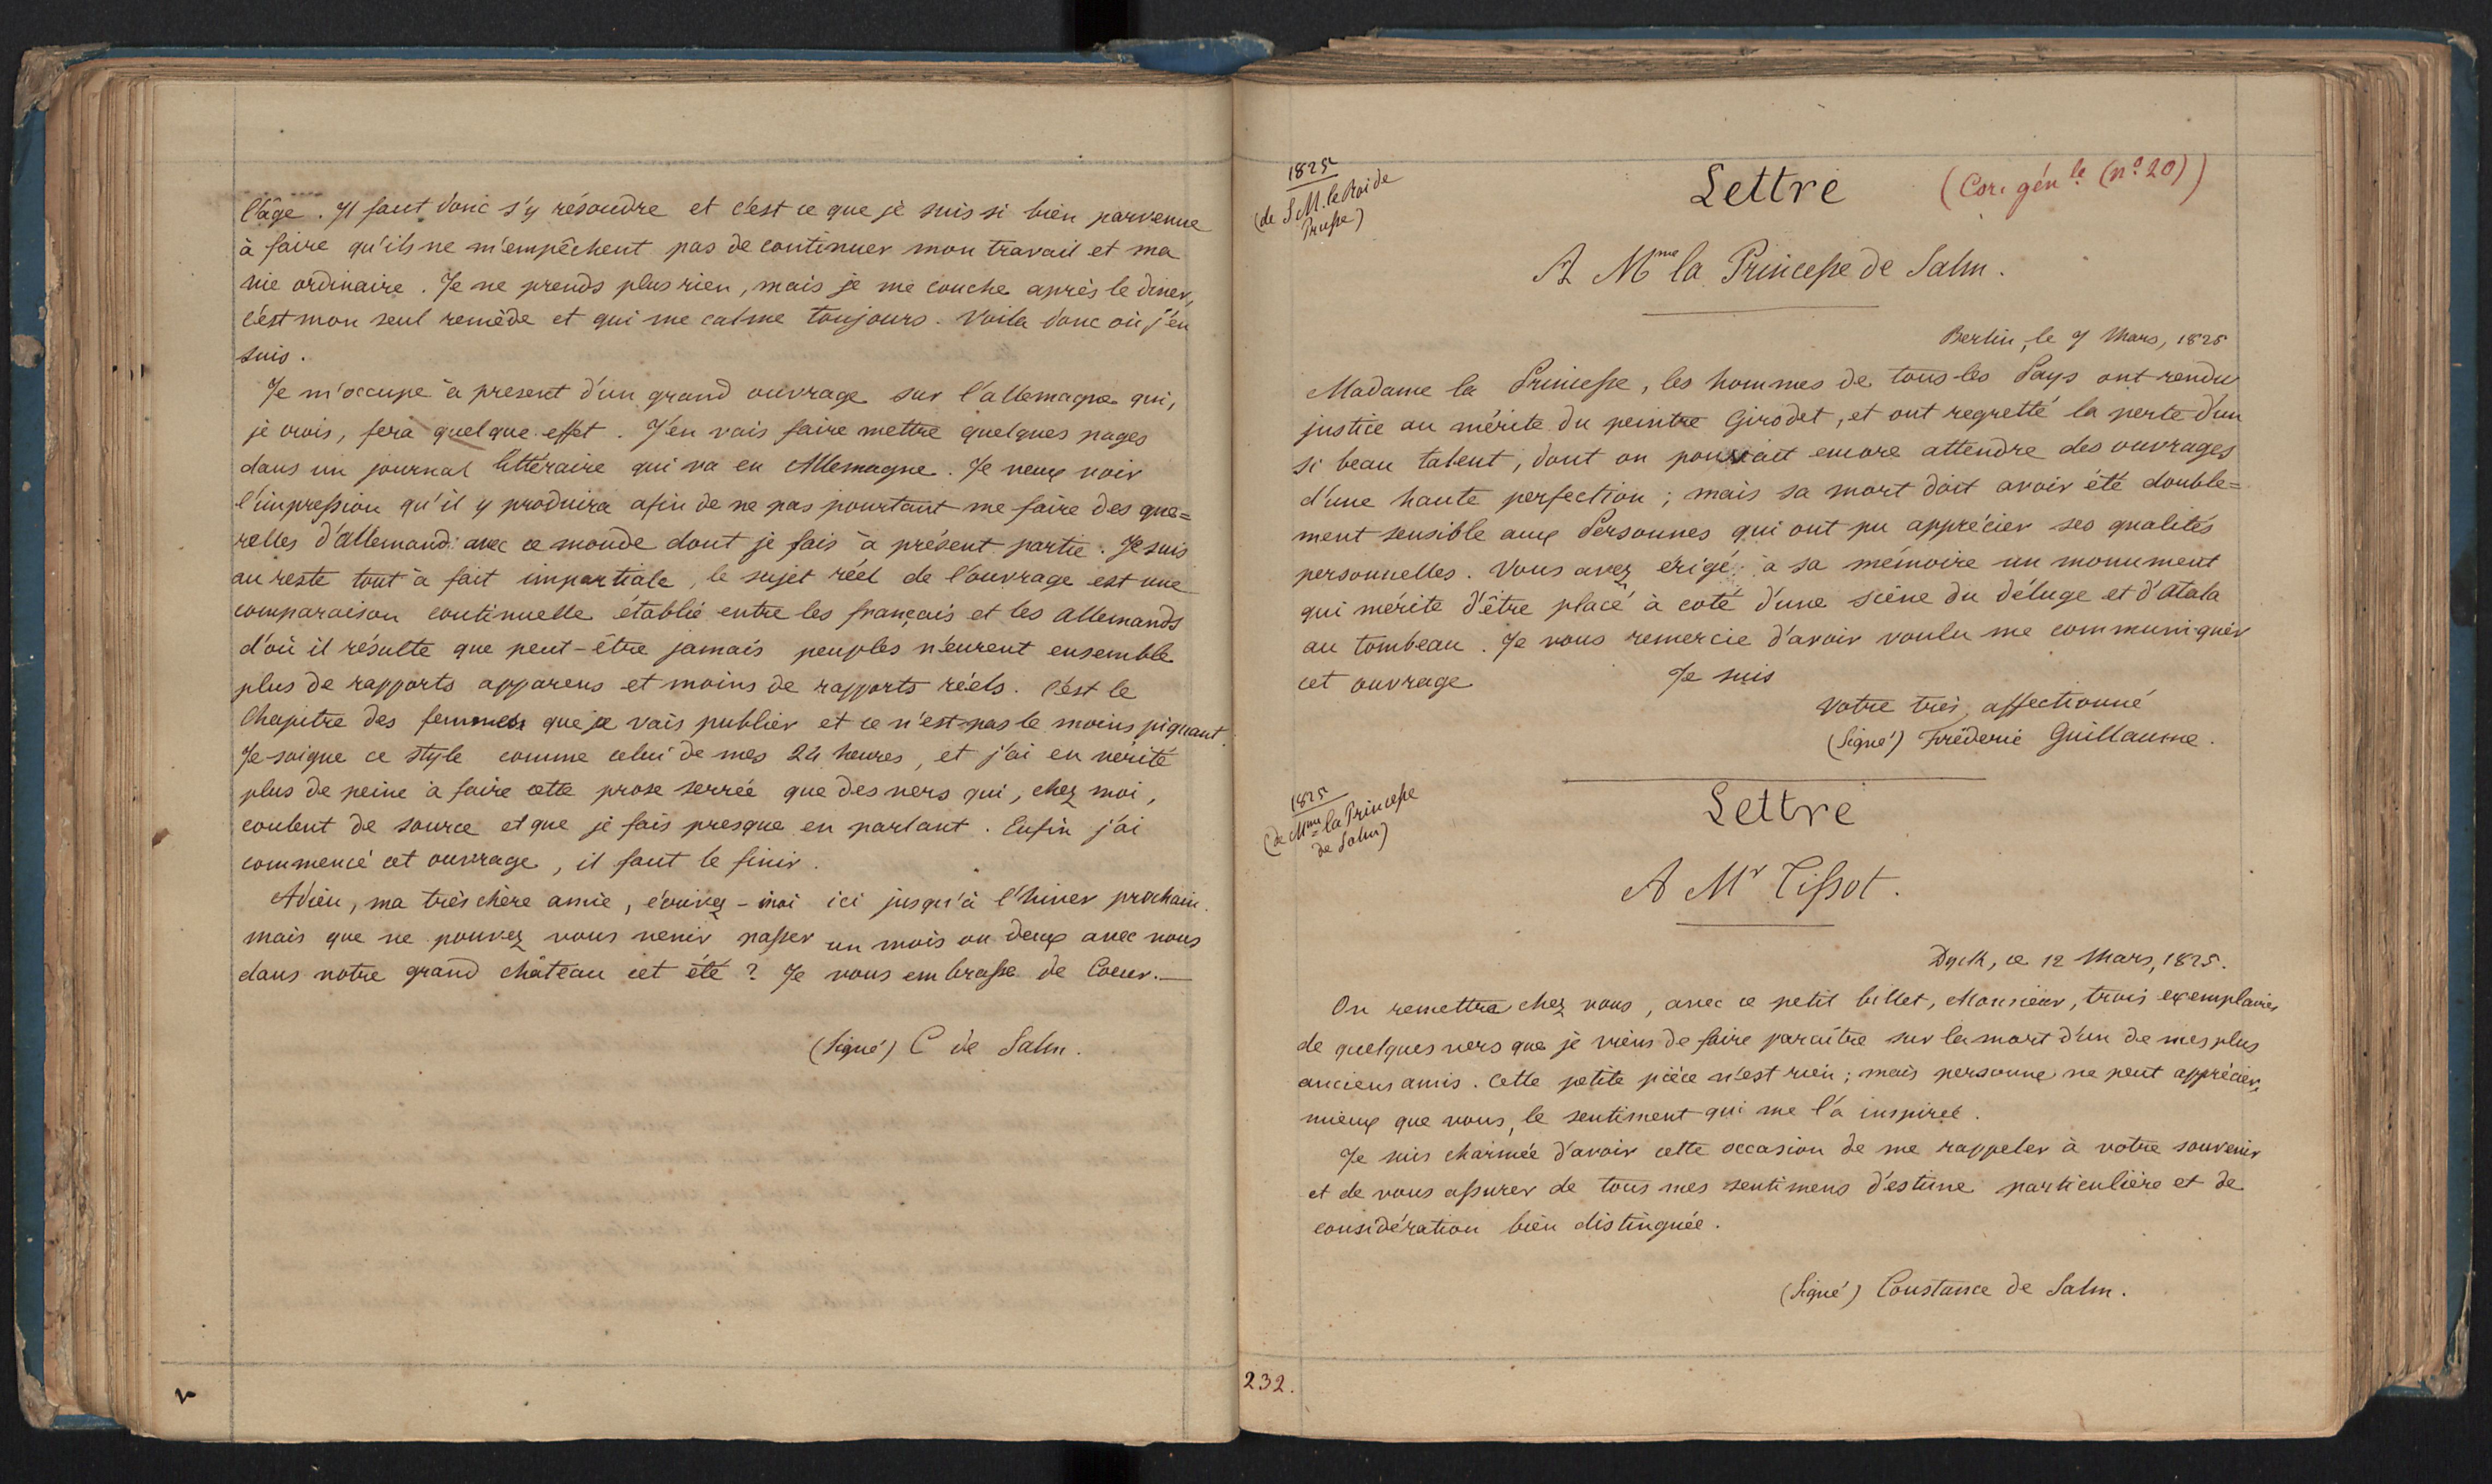 l'âge. Il faut donc s'y résoudre et c'est ce que je suis si bien parvenue
à faire qu'ils ne m'empêchent pas de continuer mon travail et ma
vie ordinaire. Je ne prends plus rien, mais je me couche après le diner,
c'est mon seul remède et qui me calme toujours. Voila donc où j'en
suis.
Je m'occupe à present d'un grand ouvrage sur l'allemagne qui,
je crois, fera quelque effet. J'en vais faire mettre quelques pages
dans un journal littéraire qui va en Allemagne. Je veux voir
l'impression qu'il y produira afin de ne pas pourtant me faire des que=
relles d'allemand avec ce monde dont je fais à présent partie. Je suis
au reste tout à fait impartiale, le sujet réel de l'ouvrage est une
comparaison continuelle établie entre les français et les allemands
d'où il résulte que peut-être jamais peuples n'eurent ensemble
plus de rapports apparens et moins de rapports réels. C'est le
Chapitre des femmes que je vais publier et ce n'est pas le moins piquant.
Je soigne ce style comme celui de mes 24 heures, et j'ai en vérité
plus de peine à faire cette prose serrée que des vers qui, chez moi,
coulent de source et que je fais presque en parlant. Enfin j'ai
commencé cet ouvrage, il faut le finir.
Adieu, ma très chère amie, écrivez-moi ici jusqu'à l'hiver prochain.
mais que ne pouvez vous venir passer un mois ou deux avec nous
dans notre grand château cet été ? Je vous embrasse de Coeur.—
(Signé) C de Salm.
1825
(de S.M. le Roi de
Prusse)
Lettre (Cor. gén.le (n.o 20))
A Mme la Princesse de Salm.
Berlin, le 7 Mars, 1825
Madame la Princesse, les hommes de tous les Pays ont rendu
justice au mérite du peintre Girodet, et ont regretté la perte d'un
si beau talent, dont on pouvait encore attendre des ouvrages
d'une haute perfection ; mais sa mort doit avoir été double=
ment sensible aux Personnes qui ont pu apprécier ses qualités
personnelles. Vous avez érigé à sa mémoire un monument
qui mérite d'être placé à coté d'une scène du déluge et d'atala
au tombeau. Je vous remercie d'avoir voulu me communiquer
cet ouvrage Je suis
Votre très affectionné
(Signé) Fréderic Guillaume.
1825
(de Mme la Princesse
de Salm)
Lettre
A Mr Tissot.
Dyck, ce 12 Mars, 1825.
On remettra chez vous, avec ce petit billet, Monsieur, trois exemplaires
de quelques vers que je viens de faire paraître sur la mort d'un de mes plus
anciens amis. Cette petite pièce n'est rien ; mais personne ne peut apprécier,
mieux que vous, le sentiment qui me l'a inspirée.
Je suis charmée d'avoir cette occasion de me rappeler à votre souvenir
et de vous assurer de tous mes sentimens d'estime particulière et de
considération bien distinguée.
(Signé) Constance de Salm.
232.